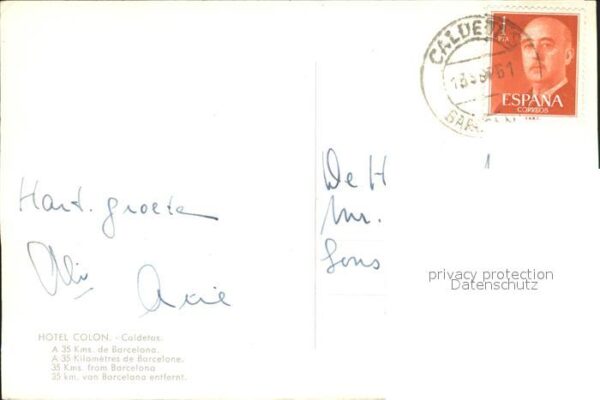 CALDETAS
1 PTA
13 SEP 61
ESPAÑA
CORREOS
Hart. groeten
De H
Mr.
Sons
privacy protection
Datenschutz
HOTEL COLON. - Caldetas.
A 35 Kms. de Barcelona.
A 35 Kilomètres de Barcelone.
35 Kms. from Barcelona
35 km. von Barcelona entfernt.